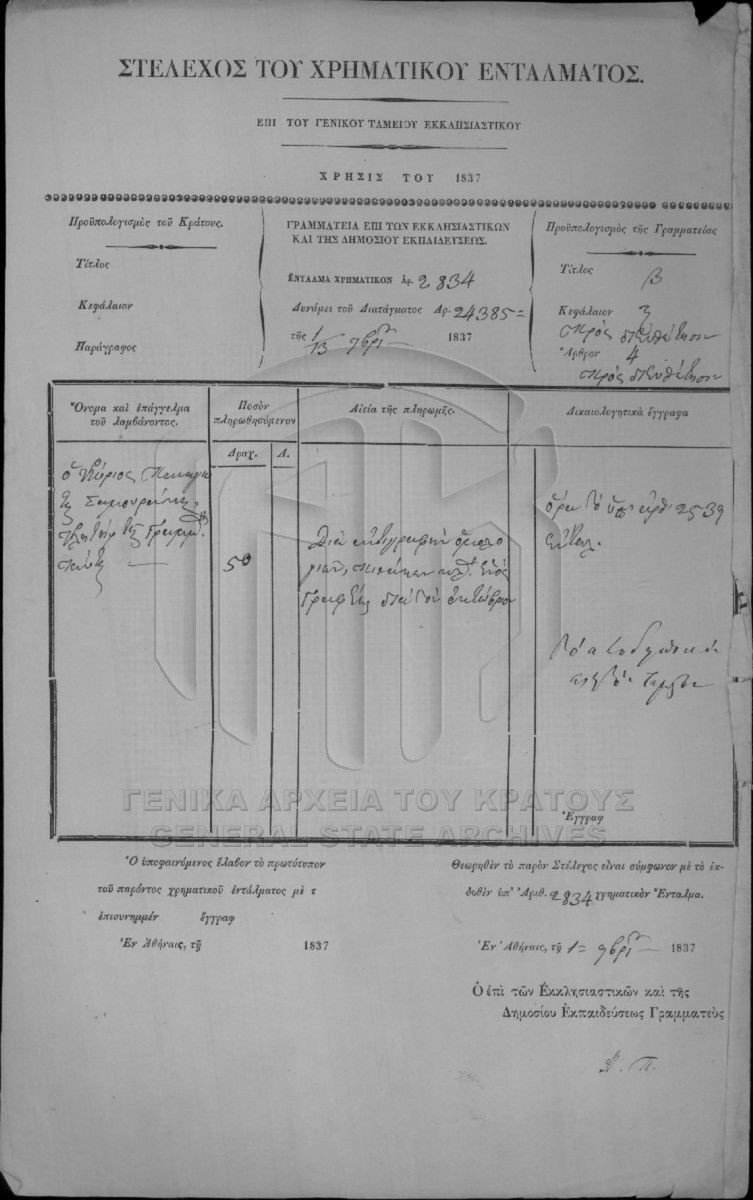 ΣΤΕΛΕΧΟΣ ΤΟΥ ΧΡΗΜΑΤΙΚΟΥ ΕΝΤΑΛΜΑΤΟΣ.
ΕΠΙ ΤΟΥ ΓΕΝΙΚΟΥ ΤΑΜΕΙΟΥ ΕΚΚΛΗΣΙΑΣΤΙΚΟΥ
ΧΡΗΣΙΣ ΤΟΥ 1837
Προϋπολογισμὸς τοῦ Κράτους.
Τίτλος
Κεφάλαιον
Παράγραφος
ΓΡΑΜΜΑΤΕΙΑ ΕΠΙ ΤΩΝ ΕΚΚΛΗΣΙΑΣΤΙΚΩΝ
ΚΑΙ ΤΗΣ ΔΗΜΟΣΙΟΥ ΕΚΠΑΙΔΕΥΣΕΩΣ.
ΕΝΤΑΛΜΑ ΧΡΗΜΑΤΙΚΟΝ Ἀρ. 2834
Δυνάμει τοῦ Διατάγματος Ἀρ. 24385=
τῆς 1/13 9βρίου 1837
Προϋπολογισμὸς τῆς Γραμματείας
Τίτλος β
Κεφάλαιον 3
πρὸς
Ἄρθρον 4
πρὸς
Ὄνομα καὶ ἐπάγγελμα
τοῦ λαμβάνοντος.
Ποσὸν
πληρωθησόμενον
Δραχ. Λ.
Αἰτία τῆς πληρωμῆς.
Δικαιολογητικὰ ἔγγραφα
ὁ Κύριος
50
Διὰ ἀντιγραφὴν
διὰ τὸν ὀκτώβριον
ὅρα τὸ ὑπ' ἀρθ. 2539
ἔνταλ.
Ἔγγραφ
ΓΕΝΙΚΑ ΑΡΧΕΙΑ ΤΟΥ ΚΡΑΤΟΥΣ
GENERAL STATE ARCHIVES
Ὁ ὑποφαινόμενος ἔλαβον τὸ πρωτότυπον
τοῦ παρόντος χρηματικοῦ ἐντάλματος μὲ τ
ἐπισυνημμέν ἔγγραφ
Ἐν Ἀθήναις, τῇ 1837
Θεωρηθὲν τὸ παρὸν Στέλεχος εἶναι σύμφωνον μὲ τὸ ἐκ-
δοθὲν ὑπ' Ἀριθ. 2834 χρηματικὸν Ἔνταλμα.
Ἐν Ἀθήναις, τῇ 1= 9βρίου 1837
Ὁ ἐπὶ τῶν Ἐκκλησιαστικῶν καὶ τῆς
Δημοσίου Ἐκπαιδεύσεως Γραμματεὺς